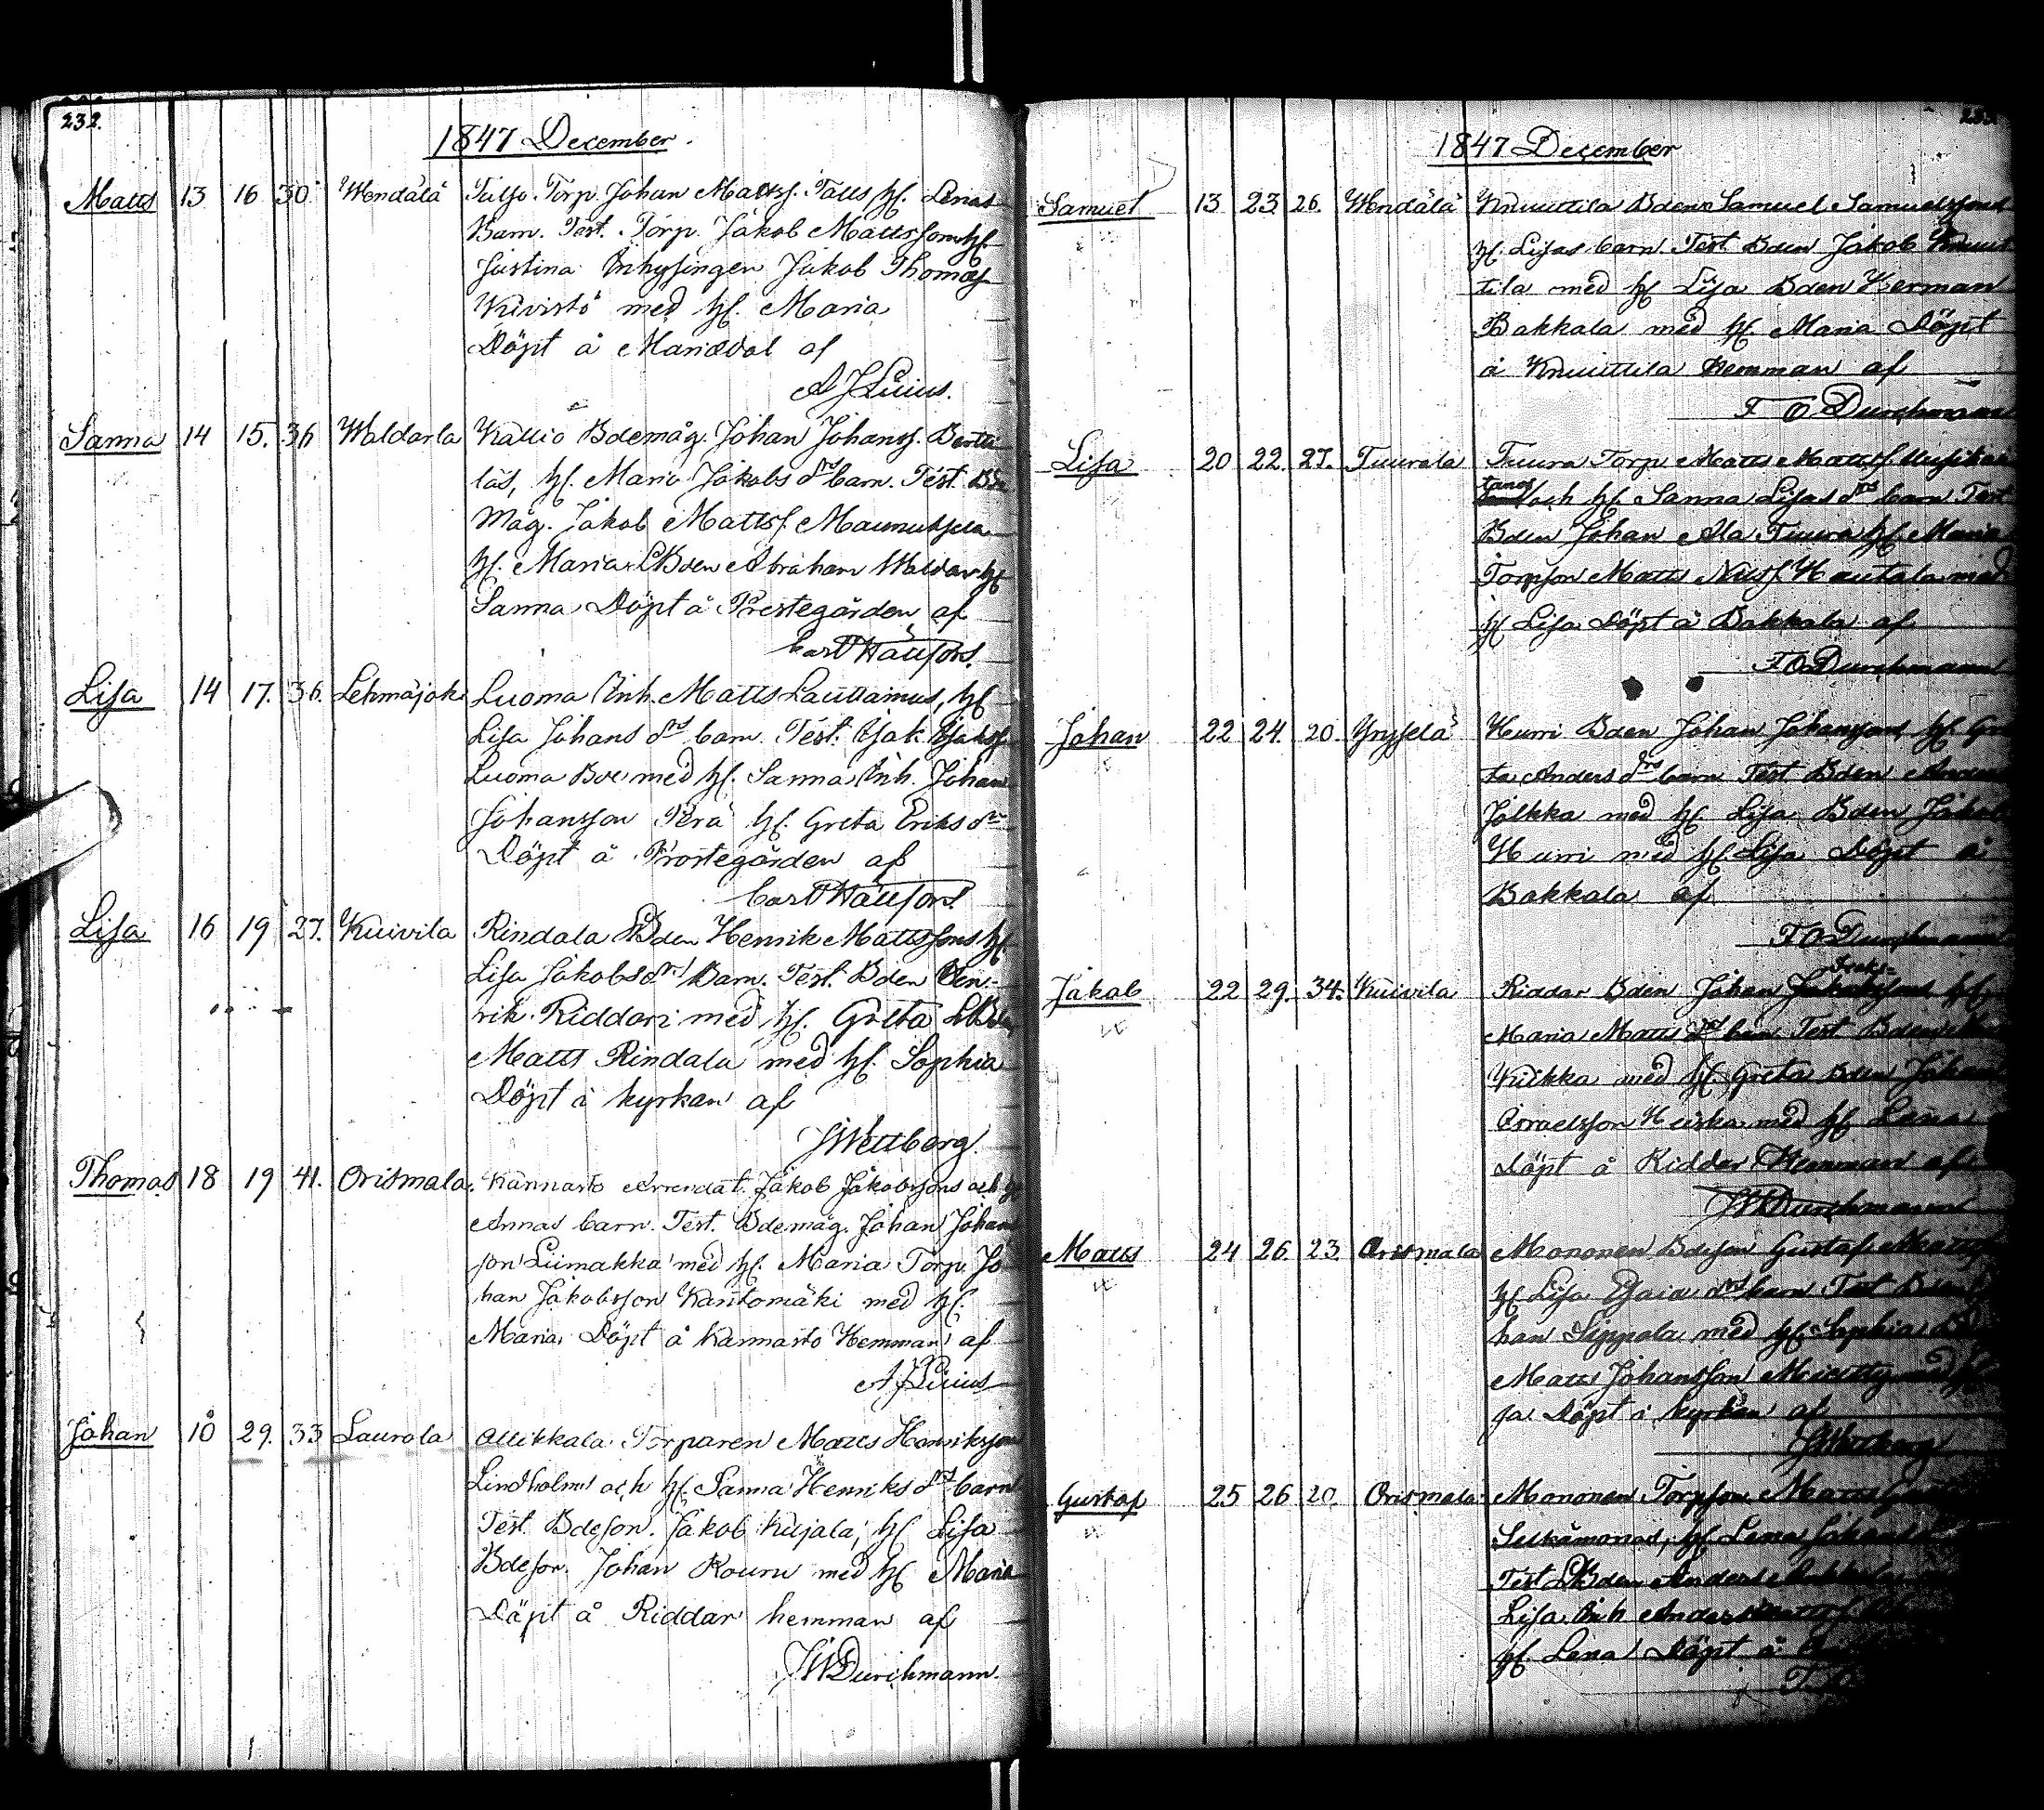 232.
1847 December
Matts 13 16 30 Wendälä Torp. Johan Mattsf. Talls hf. Lenas
Barn. Test. Torp. Jakob Mattsson hf.
Justina Inhysingen Jakob Thomasf.
Kivistö med hf. Maria
Döpt å Mariedal af
Sanna 14 15. 36 Waldarla Kallio Bdemåg. Johan Johansf. Bertti
läs, hf. Maria Jakobs drs barn. Test. Bde
Måg. Jakob Mattsf. Maunuksela
hf. Maria LBden Abraham Waldar hf
Sanna Döpt å Prestegården af
Carl Hällfors.
Lisa 14 17. 36. Lehmäjoki Luoma Inh. Matts Lauttamus, hf
Lisa Johans drs barn. Test. Isak Isaksf
Luoma Bde med hf. Sanna Inh. Johan
Johansson Perä hf. Greta Eriks dr
Döpt å Prestegården af
Carl Hällfors.
Lisa 16 19 27. Kuivila Rindala LBden Henrik Mattssons hf.
Lisa Jakobs drs Barn. Test. Bden Hen-
rik Riddari med hf. Greta LBden
Matts Rindala med hf. Sophia
Döpt i kyrkan af
Wettberg.
Thomas 18 19 41. Orismala. Kannasto Arrendat. Jakob Jakobssons och hf
Annas barn. Test. Bdemåg. Johan Johans
son Liimakka med hf. Maria Torp. Jo
han Jakobsson Kantomäki med hf.
Maria Döpt å Kannasto Hemman af
Johan 10 29. 33 Laurola Ollikkala Torparen Matts Henriksson
Lindholms och hf. Sanna Henriks drs barn
Test. Bdeson. Jakob Kujala, hf Lisa
Bdeson. Johan Kouru med hf Maria
Döpt å Riddar hemman af
JW Durchmann.
1847 December
Samuel 13 23 26. Wendälä Knuuttila Bden Samuel Samuelssons
hf. Lisas barn. Test Bden Jakob Knuut
tila med hf Lisa Bden Herman
Bakkala med hf Maria Döpt
å Knuuttila Hemman af
F O Durchman
Lisa 20 22. 27. Tuurala Tuura Torp. Matts Mattsf.
tanos och hf Sanna Lisas drs barn Test
Bden Johan Ala Tuura hf. Maria
Torpson Matts Nilsf. Hautala med
hf Lisa Döpt å Bakkala af
F O Durchmann
Johan 22 24. 20. Yryselä Hurri Bden Johan Johanssons hf. Gre
ta Anders drs barn Test Bden
Jolkka med hf Lisa Bden Jakob
Hurri med hf Lisa Döpt å
Bakkala af
F O Durchmann
Jakob 22 29. 34. Kuivila Riddar Bden Johan Isaks- hf
Maria Matts drs barn Test Bden
Kiikka med hf. Greta Bden Johan
Israelsson Heiska med hf Lena
Döpt å Riddar Hemman af
JW Durchmann
Matts 24 26. 23 Orismala Mononen Bdeson Gustaf Mattsf
hf Lisa Esaia drs barn Test Bden
han Sippola med hf Sophia
Matts Johansson med
sa Döpt i kyrkan af
Wettberg
Gustaf 25 26 20. Orismala Mononen Torpson
hf. Lena Johans
Test LBden Anders
Lisa Inh Anders
hf. Lena Döpt å